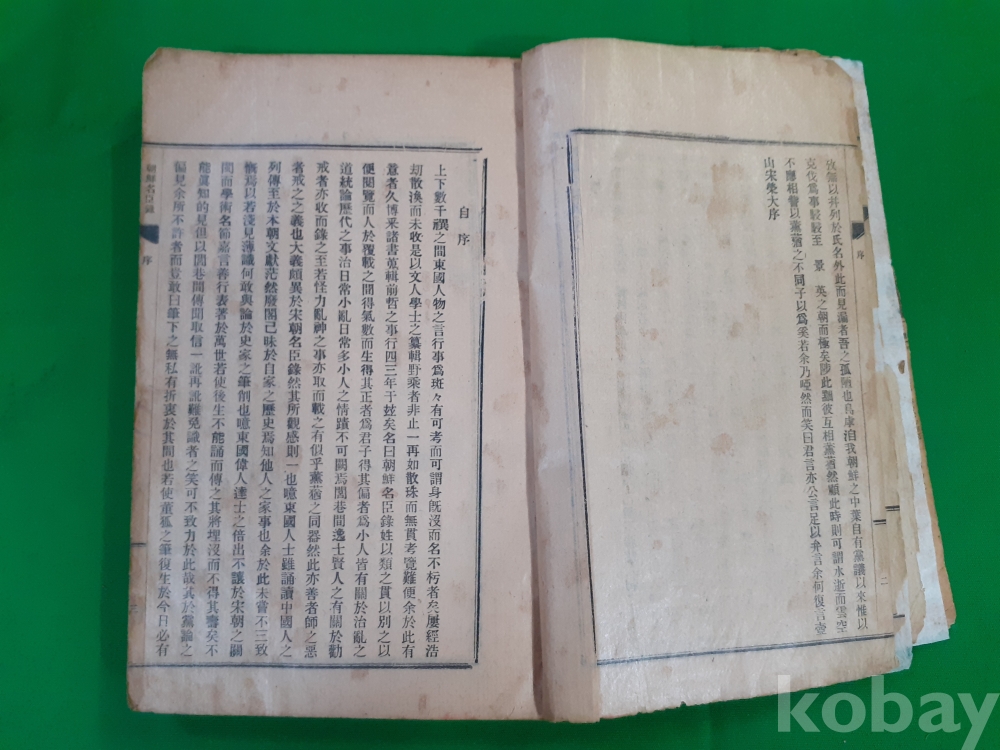 序
二
攷無以幷列於氏名外此而見漏者吾之孤陋也烏虖洎我朝鮮之中葉自有黨議以來惟以
克伐爲事駸駸至 景 英之朝而極矣陟此黜彼互相薰蕕然顧此時則可謂水逝而雲空
不應相訾以薰蕕之不同子以爲奚若余乃啞然而笑曰君言亦公言足以弁言余何復言壺
山宋榮大序
自序
上下數千禩之間東國人物之言行事爲斑々有可考而可謂身旣沒而名不朽者矣屢經浩
刧散渙而未收是以文人學士之纂輯野乘者非止一再如散珠而無貫考覽雖便余於此有
意者久博采諸書蒐輯前哲之事行四三年于玆矣名曰朝鮮名臣錄姓以類之貫以別之以
便閱覽而人於覆載之間得氣數而生得其正者爲君子得其偏者爲小人皆有關於治亂之
道統論歷代之事治日常小亂日常多小人之情蹟不可闕焉閭巷間逸士賢人之有關於勸
戒者亦收而錄之至若怪力亂神之事亦取而載之有似乎薰蕕之同器然此亦善者師之惡
者戒之之義也大義頗異於宋朝名臣錄然其所觀感則一也噫東國人士雖誦讀中國人之
列傳至於本朝文獻茫然廢閣已昧於自家之歷史焉知他人之家事也余於此未嘗不三致
慨焉以若淺見薄識何敢與論於史家之筆削也噫東國偉人達士之倍出不讓於宋朝之關
閩而學術名節嘉言善行表著於萬世若使後生不能誦而傳之其將埋沒而不得其壽矣不
能眞知的見但以閭巷間傳聞取信一訛再訛難免識者之笑可不致力於此哉其於黨論之
偏見余所不許者而豈敢曰筆下之無私有折衷於其間也若使董狐之筆復生於今日必有
朝鮮名臣錄
序
kobay